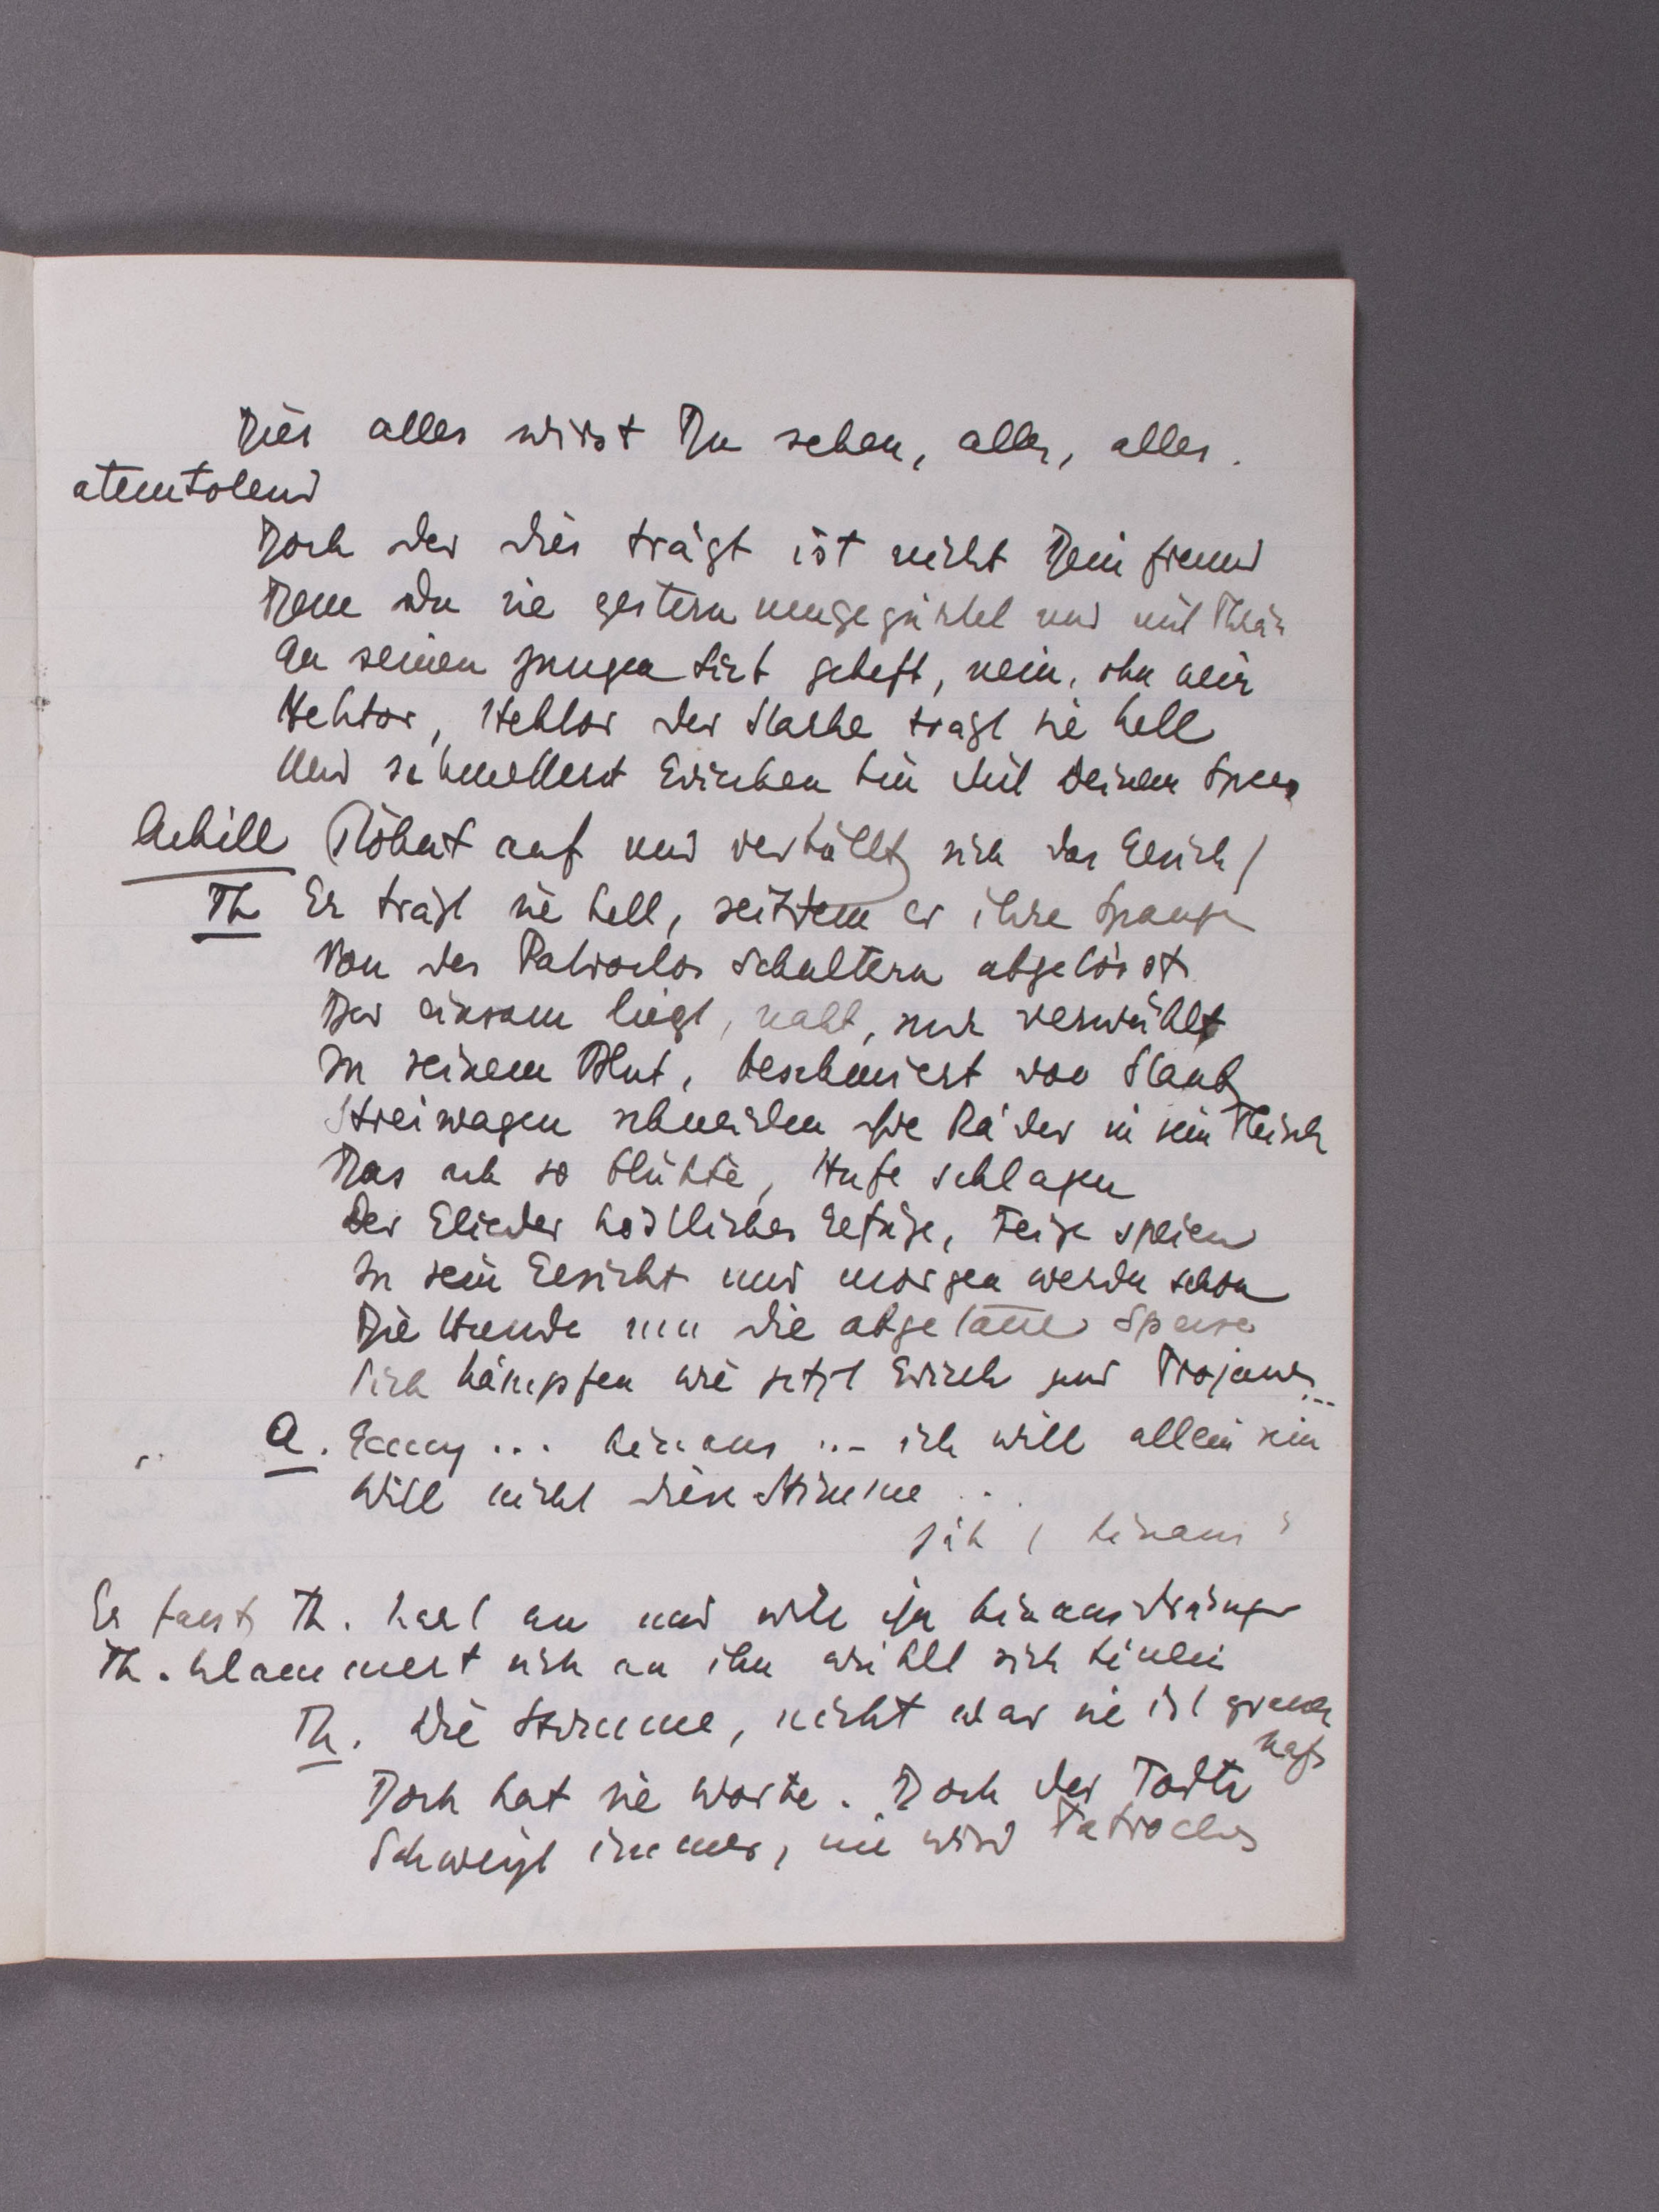 Dies alles wirst Du sehen, alles, alles.
atemholend
Doch der dies trägt ist nicht Dein freund
Dem du sie gestern umgegürtet und mit
An seinen jungen Leib geheft, nein,
Hektor, Hektor der Starke trägt sie hell
Und schmettert Griechen hin mit Deinem Speer
Achill stöhnt auf und verhüllt sich das Gesich)
Th Er trägt sie hell, seitdem er ihre Spange
Von des Patroclos Schultern abgelöst
Der einsam liegt, nakt, nur verwühlt
In seinem Blut, beschmiert von Staub
Streiwagen schneiden ihre Räder in sein Fleisch
Das ach so blühte, Hufe schlagen
Der Glieder köstliches Gefüge, Feige speien
In sein Gesicht und morgen werden schon
Die Hunde um die Speise
Sich kämpfen wie jetzt Griech und Trojaner...
A. Genug ... hinaus ... ich will allein sein
Will nicht diese Stimme ..
hinaus
Er fasst Th. hart an und will ihn hinausdrängen
Th. klammert sich an ihn wühlt sich hinein
Th. Die Stimme, nicht wahr sie ist grauen
haft
Doch hat sie Worte. Doch der Todte
Schweigt immer, nie wird Patroclos